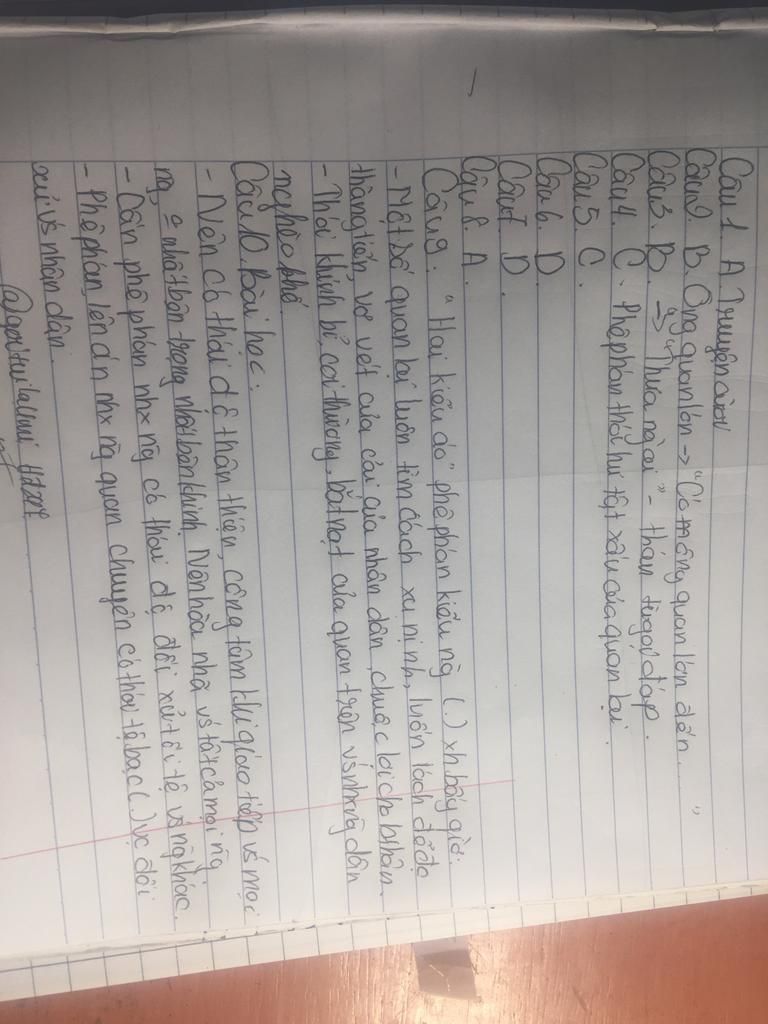 Câu 1. A. Truyện cười
Câu 2. B. Ông quan lớn → "Có mống quan lớn đến....."
Câu 3. B. → "Thưa ngài" - thán từ gọi đáp.
Câu 4. C. Phê phán thói hư tật xấu của quan lại.
Câu 5. C.
Câu 6. D
Câu 7. D.
Câu 8. A
Câu 9. "Hai kiểu áo" phê phán kiểu ng (.) xh bấy giờ.
- Một số quan lại luôn tìm cách xu nịnh, luồn lách để đc
thăng tiến, vơ vét của cải của nhân dân, chuộc lợi cho bthân.
- Thói khinh bỉ, coi thường, bắt nạt của quan trên vs những dân
nghèo khổ.
Câu 10. Bài học:
- Nên có thái độ thân thiện, công tâm khi giao tiếp vs mọi
ng, nhất bên trọng nhất bên khinh. Nên hòa nhã vs tất cả mọi ng.
- Cần phê phán nhx ng có thái độ đối xử tồi tệ vs ng khác.
- Phê phán, lên án nhx ng quan chuyên có thái độ bạc (.) vc đối
xử vs nhân dân.